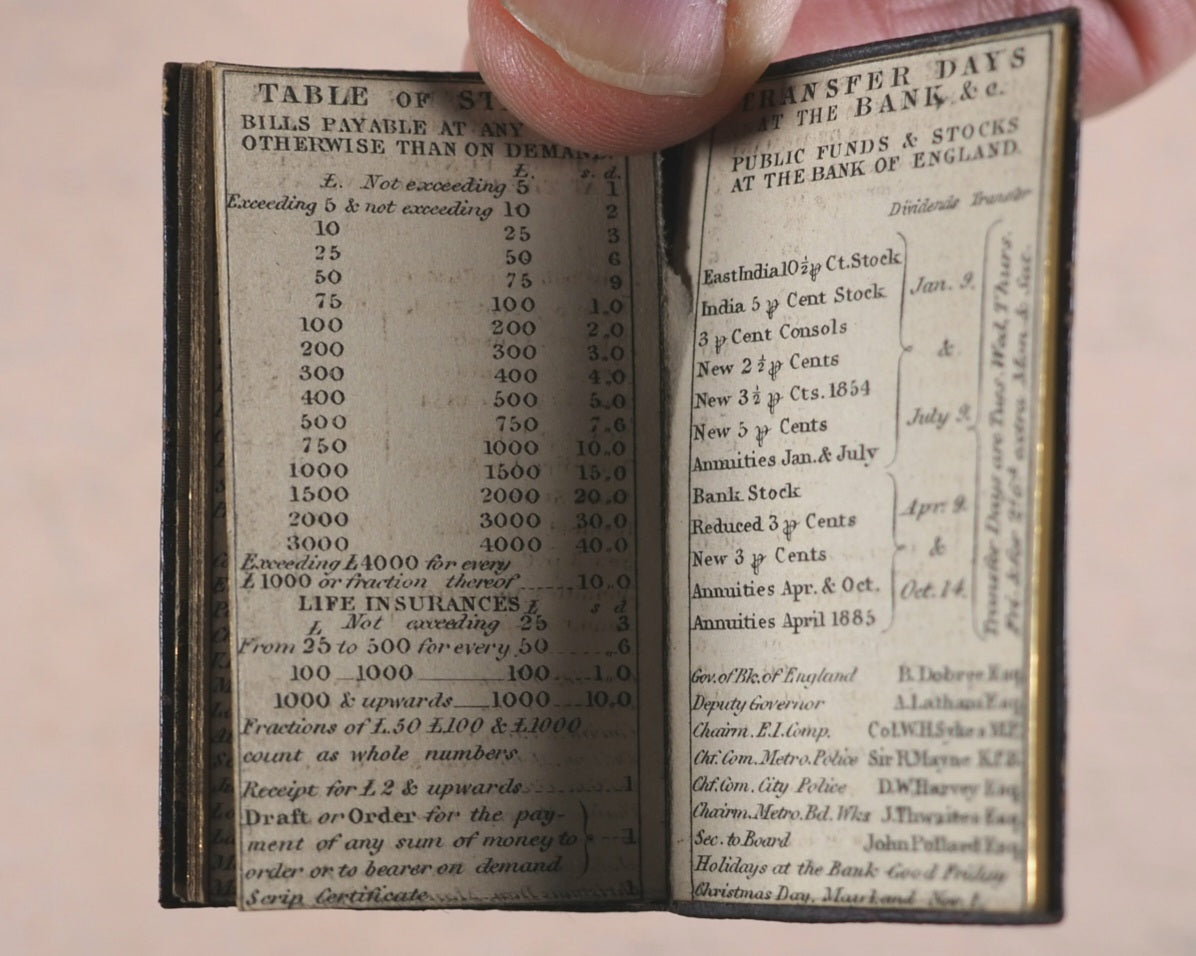 TABLE OF
BILLS PAYABLE AT ANY
OTHERWISE THAN ON DEMAND.
£. s. d.
£. Not exceeding 5 1
Exceeding 5 & not exceeding 10 2
10 25 3
25 50 6
50 75 9
75 100 1.0
100 200 2.0
200 300 3.0
300 400 4.0
400 500 5.0
500 750 7.6
750 1000 10.0
1000 1500 15.0
1500 2000 20.0
2000 3000 30.0
3000 4000 40.0
Exceeding £4000 for every
£1000 or fraction thereof 10.0
LIFE INSURANCES £ s d
£ Not exceeding 25 3
From 25 to 500 for every 50 .6
100 1000 100 1.0
1000 & upwards 1000 10.0
Fractions of £.50 £100 & £1000
count as whole numbers.
Receipt for £2 & upwards 1
Draft or Order for the pay-
ment of any sum of money to 1
order or to bearer on demand
Scrip Certificate 1
TRANSFER DAYS
AT THE BANK, &c.
PUBLIC FUNDS & STOCKS
AT THE BANK OF ENGLAND.
Dividends Transfer
East India 10½ ⅌ Ct. Stock
India 5 ⅌ Cent Stock
3 ⅌ Cent Consols
New 2½ ⅌ Cents
New 3½ ⅌ Cts. 1854
New 5 ⅌ Cents
Annuities Jan. & July
Jan. 9.
&
July 9.
Bank Stock
Reduced 3 ⅌ Cents
New 3 ⅌ Cents
Annuities Apr. & Oct.
Annuities April 1885
Apr. 9.
&
Oct. 14.
Transfer Days are Tues. Wed, Thurs.
Fri. & for 2s 6d extra Mon & Sat.
Gov. of Bk. of England B. Dobree Esq
Deputy Governor A. Latham Esq
Chairm. E.I. Comp. Col. W.H. Sykes M.P.
Chf. Com. Metro. Police Sir R Mayne K.C.B.
Chf. Com. City Police D.W. Harvey Esq
Chairm. Metro. Bd. Wks J. Thwaites Esq
Sec. to Board John Pollard Esq
Holidays at the Bank Good Friday
Christmas Day, May 1 and Nov. 1.